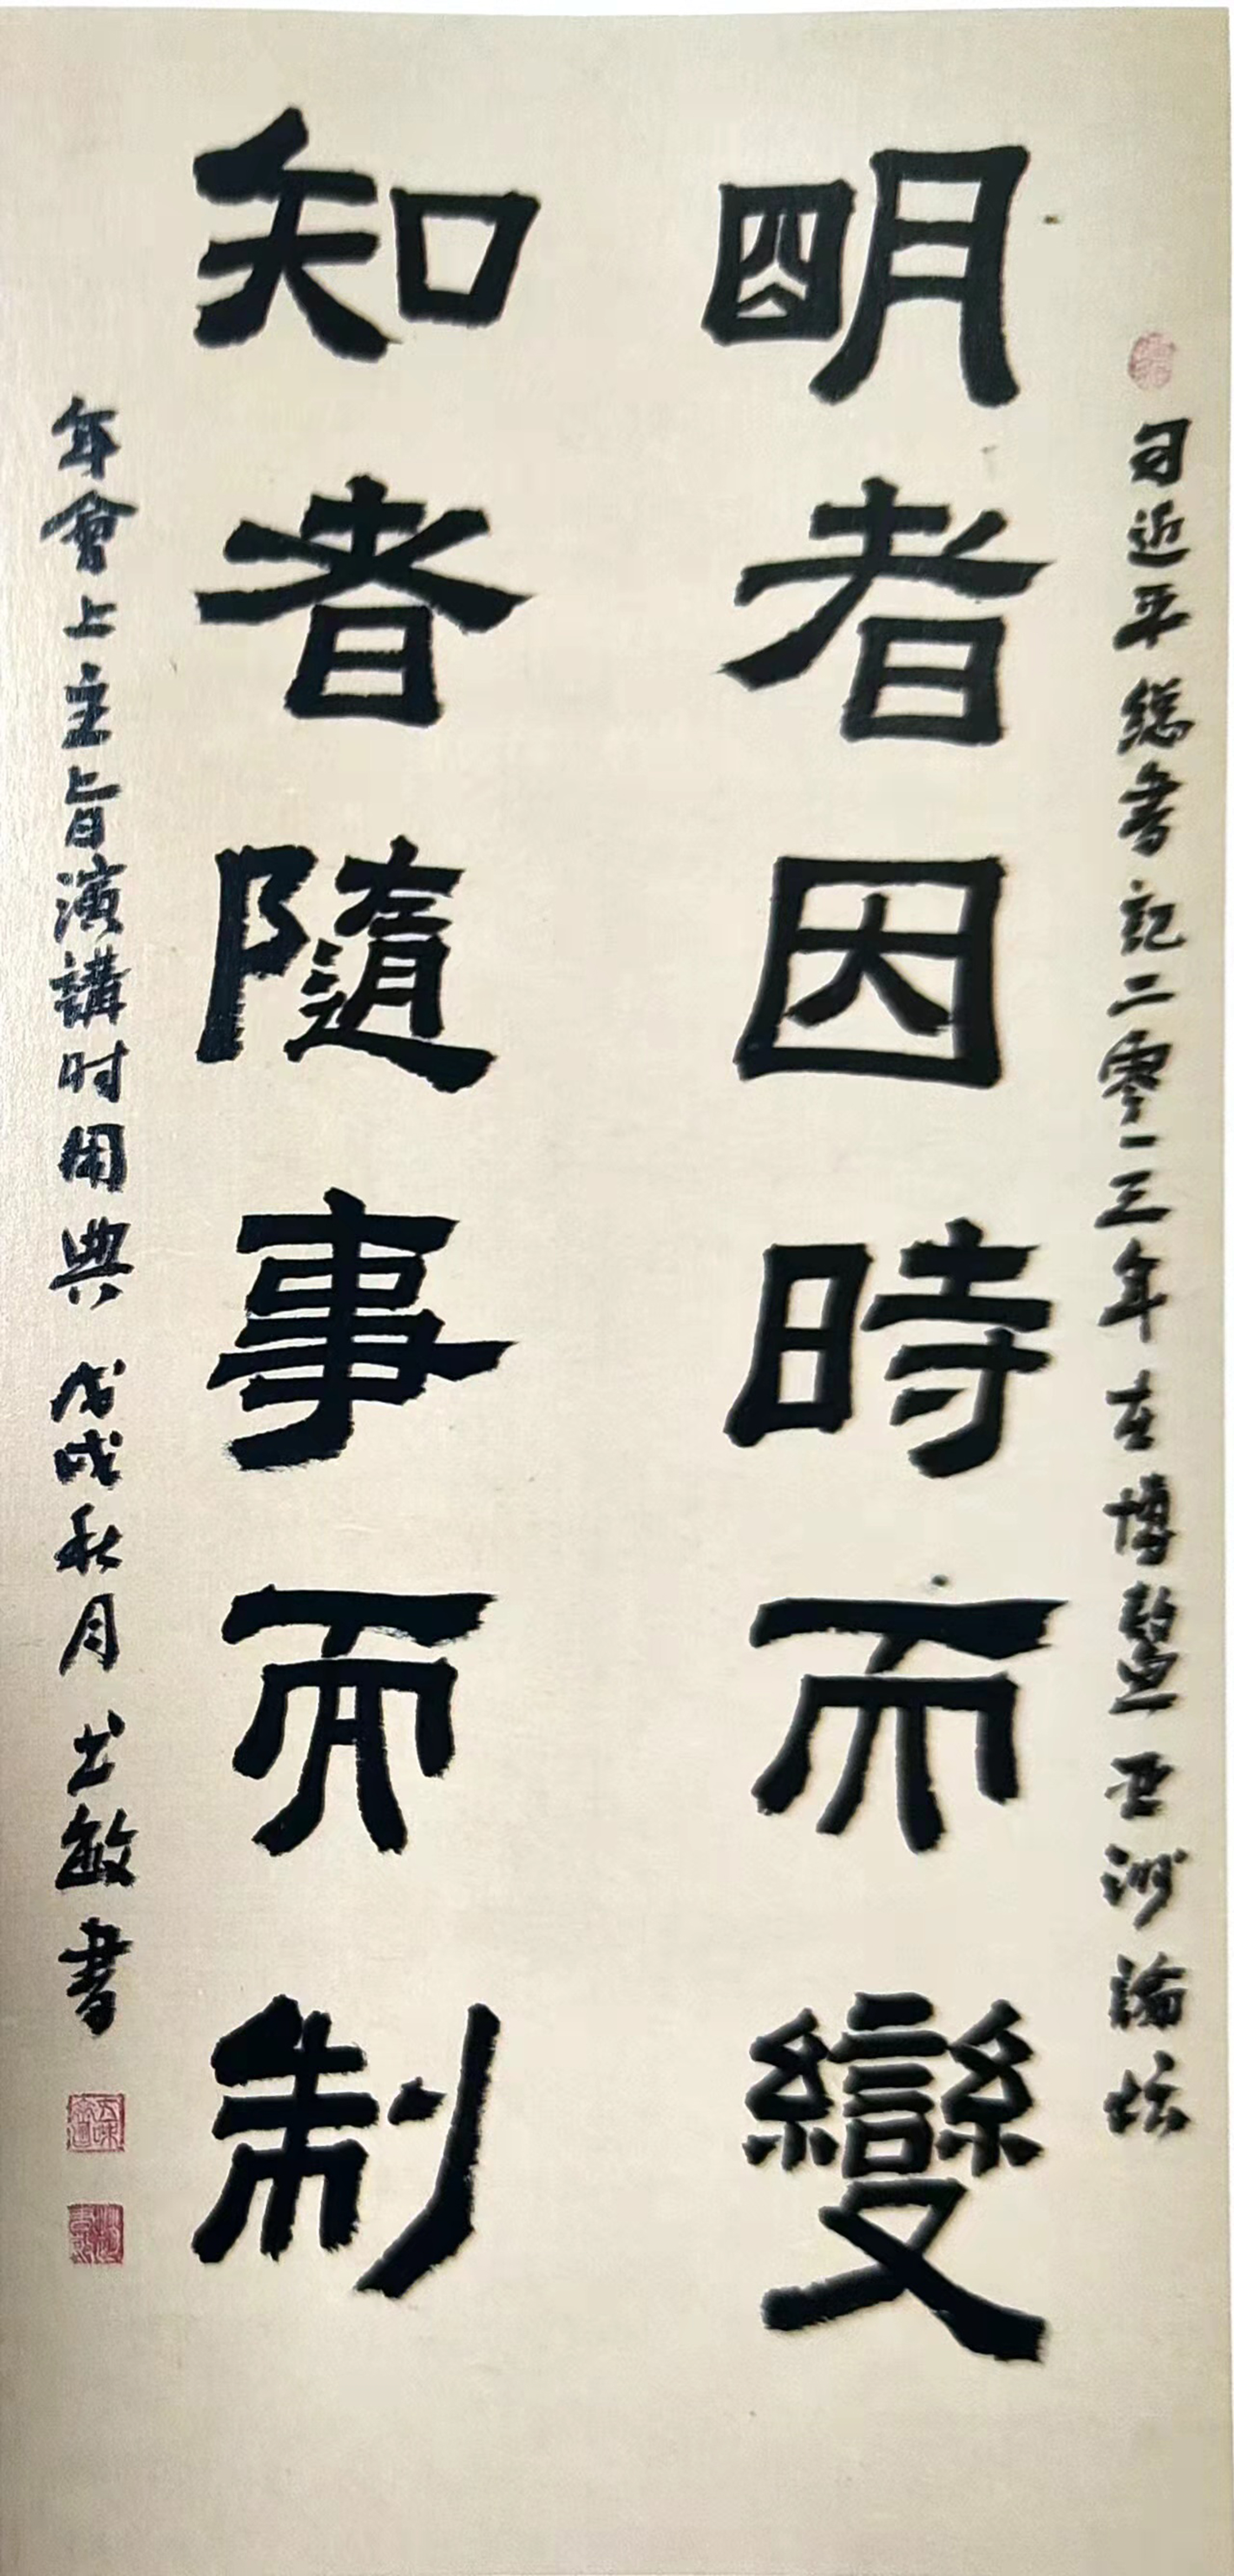 习近平總書記二零一三年在博鰲亚洲論坛
明者因時而變
知者隨事而制
年會上主旨演講时用典 戊戌秋月 书敏書